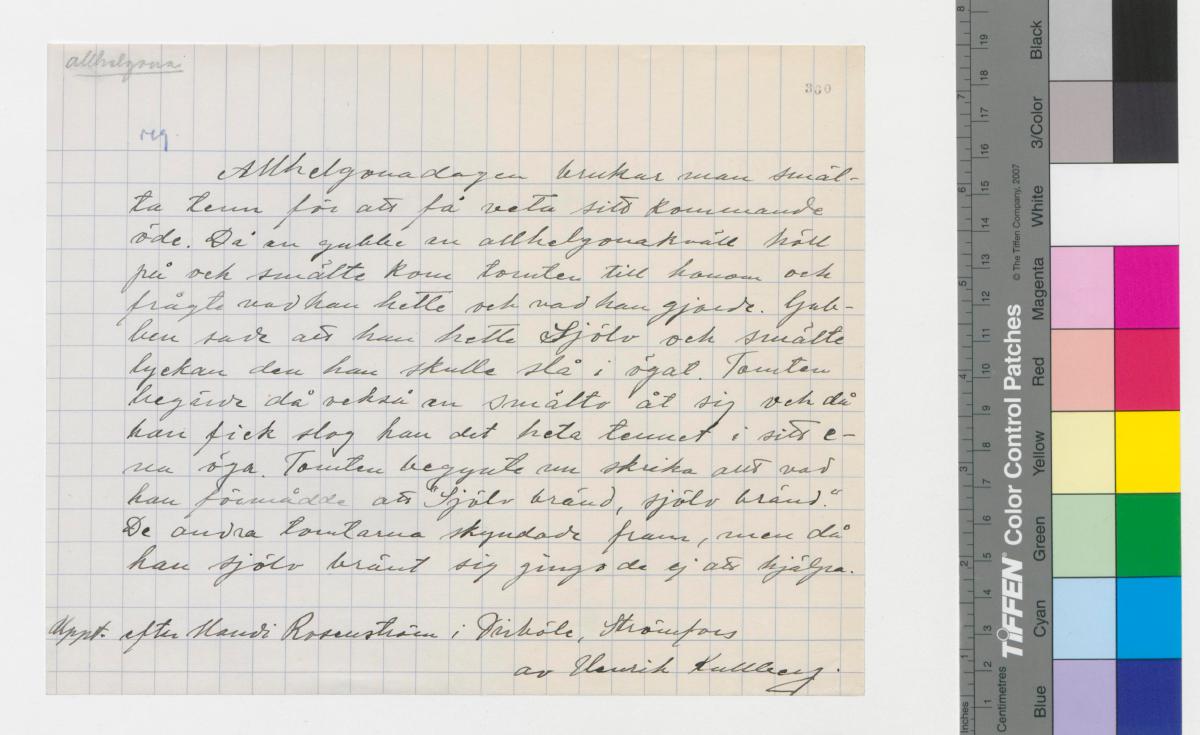 allhelgona
300
Allhelgonadagen brukar man smäl-
ta tenn för att få veta sitt kommande
öde. Då en gubbe en allhelgonakväll höll
på och smälte kom tomten till honom och
frågte vad han hette och vad han gjorde. Gub-
ben sade att han hette Sjölv och smälte
lyckan den han skulle slå i ögat. Tomten
begärde då också en smälto åt sig och då
han fick slog han det heta tennet i sitt e-
na öga. Tomten begynte nu skrika allt vad
han förmådde att "Sjölv bränd, sjölv bränd."
De andra tomtarna skyndade fram, men då
han sjölv bränt sig gingo de ej att hjälpa.
Uppt. efter Mandi Rosenström i Strömfors
av Henrik Kullberg.
8
7
6
5
4
3
2
1
Inches
19
18
17
16
15
14
13
12
11
10
9
8
7
6
5
4
3
2
1
Centimetres
TIFFEN® Color Control Patches
© The Tiffen Company, 2007
Black
3/Color
White
Magenta
Red
Yellow
Green
Cyan
Blue